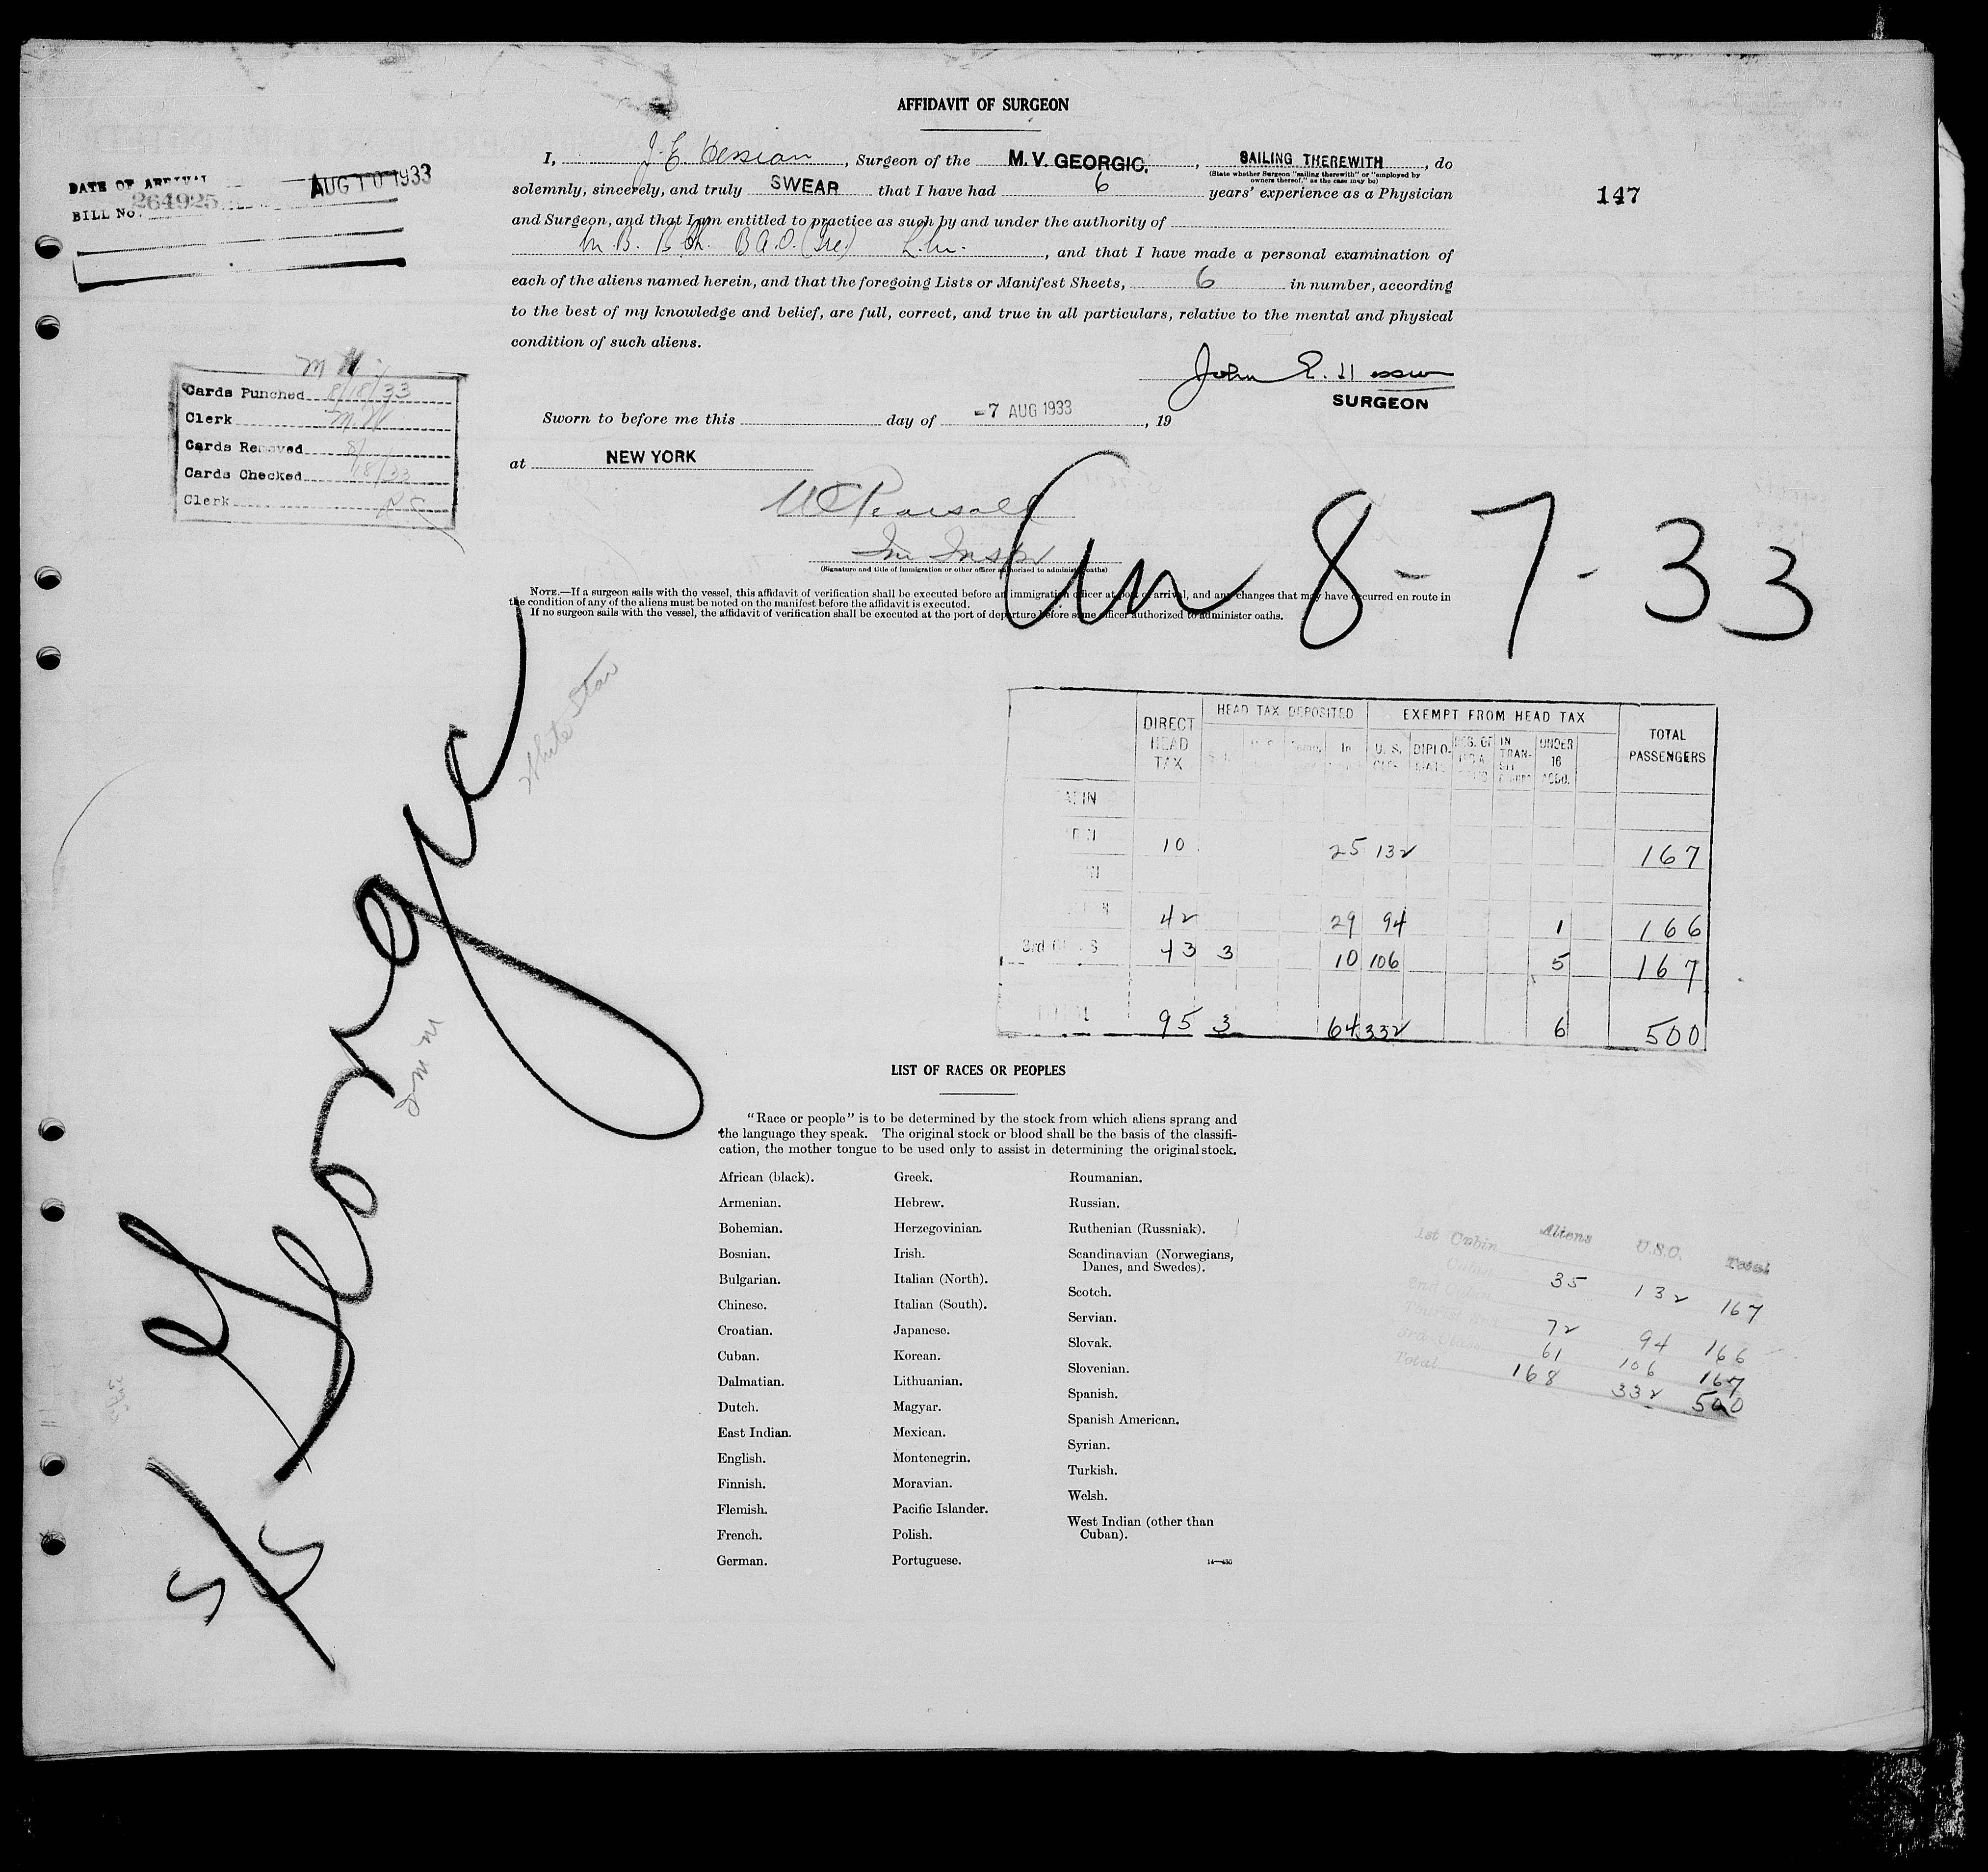 AFFIDAVIT OF SURGEON
I, J. E. Hession, Surgeon of the M. V. GEORGIC, SAILING THEREWITH, do
(State whether Surgeon "sailing therewith" or "employed by
owners thereof," as the case may be)
solemnly, sincerely, and truly SWEAR that I have had 6 years' experience as a Physician
and Surgeon, and that I am entitled to practice as such by and under the authority of
M.B. B.Ch. B.A.O. (Ire) L.M. , and that I have made a personal examination of
each of the aliens named herein, and that the foregoing Lists or Manifest Sheets, 6 in number, according
to the best of my knowledge and belief, are full, correct, and true in all particulars, relative to the mental and physical
condition of such aliens.
John E. Hession
SURGEON
Sworn to before me this day of -7 AUG 1933, 19
at NEW YORK
Pearsall
Im Inspr
(Signature and title of immigration or other officer authorized to administer oaths)
NOTE.—If a surgeon sails with the vessel, this affidavit of verification shall be executed before an immigration officer at port of arrival, and any changes that may have occurred en route in
the condition of any of the aliens must be noted on the manifest before the affidavit is executed.
If no surgeon sails with the vessel, the affidavit of verification shall be executed at the port of departure before some officer authorized to administer oaths.
DATE OF ARRIVAL AUG 10 1933
BILL No. 264925
147
Cards Punched 8/18/33
Clerk M.W.
Cards Removed 8/
Cards Checked 18/33
Clerk
8-7-33
S/S Georgic
White Star
DIRECT HEAD TAX HEAD TAX DEPOSITED EXEMPT FROM HEAD TAX TOTAL PASSENGERS
In U. S. DIPLO- IN TRAN- UNDER 16
10 25 132 167
42 29 94 1 166
3rd CLASS 43 3 10 106 5 167
TOTAL 95 3 64 332 6 500
LIST OF RACES OR PEOPLES
"Race or people" is to be determined by the stock from which aliens sprang and
the language they speak. The original stock or blood shall be the basis of the classifi-
cation, the mother tongue to be used only to assist in determining the original stock.
African (black).
Armenian.
Bohemian.
Bosnian.
Bulgarian.
Chinese.
Croatian.
Cuban.
Dalmatian.
Dutch.
East Indian.
English.
Finnish.
Flemish.
French.
German.
Greek.
Hebrew.
Herzegovinian.
Irish.
Italian (North).
Italian (South).
Japanese.
Korean.
Lithuanian.
Magyar.
Mexican.
Montenegrin.
Moravian.
Pacific Islander.
Polish.
Portuguese.
Roumanian.
Russian.
Ruthenian (Russniak).
Scandinavian (Norwegians,
Danes, and Swedes).
Scotch.
Servian.
Slovak.
Slovenian.
Spanish.
Spanish American.
Syrian.
Turkish.
Welsh.
West Indian (other than
Cuban).
14—430
Aliens U.S.C. Total
1st Cabin
Cabin 35 132 167
2nd Cabin
Tourist 3rd 72 94 166
3rd Class 61 106 167
Total 168 332 500